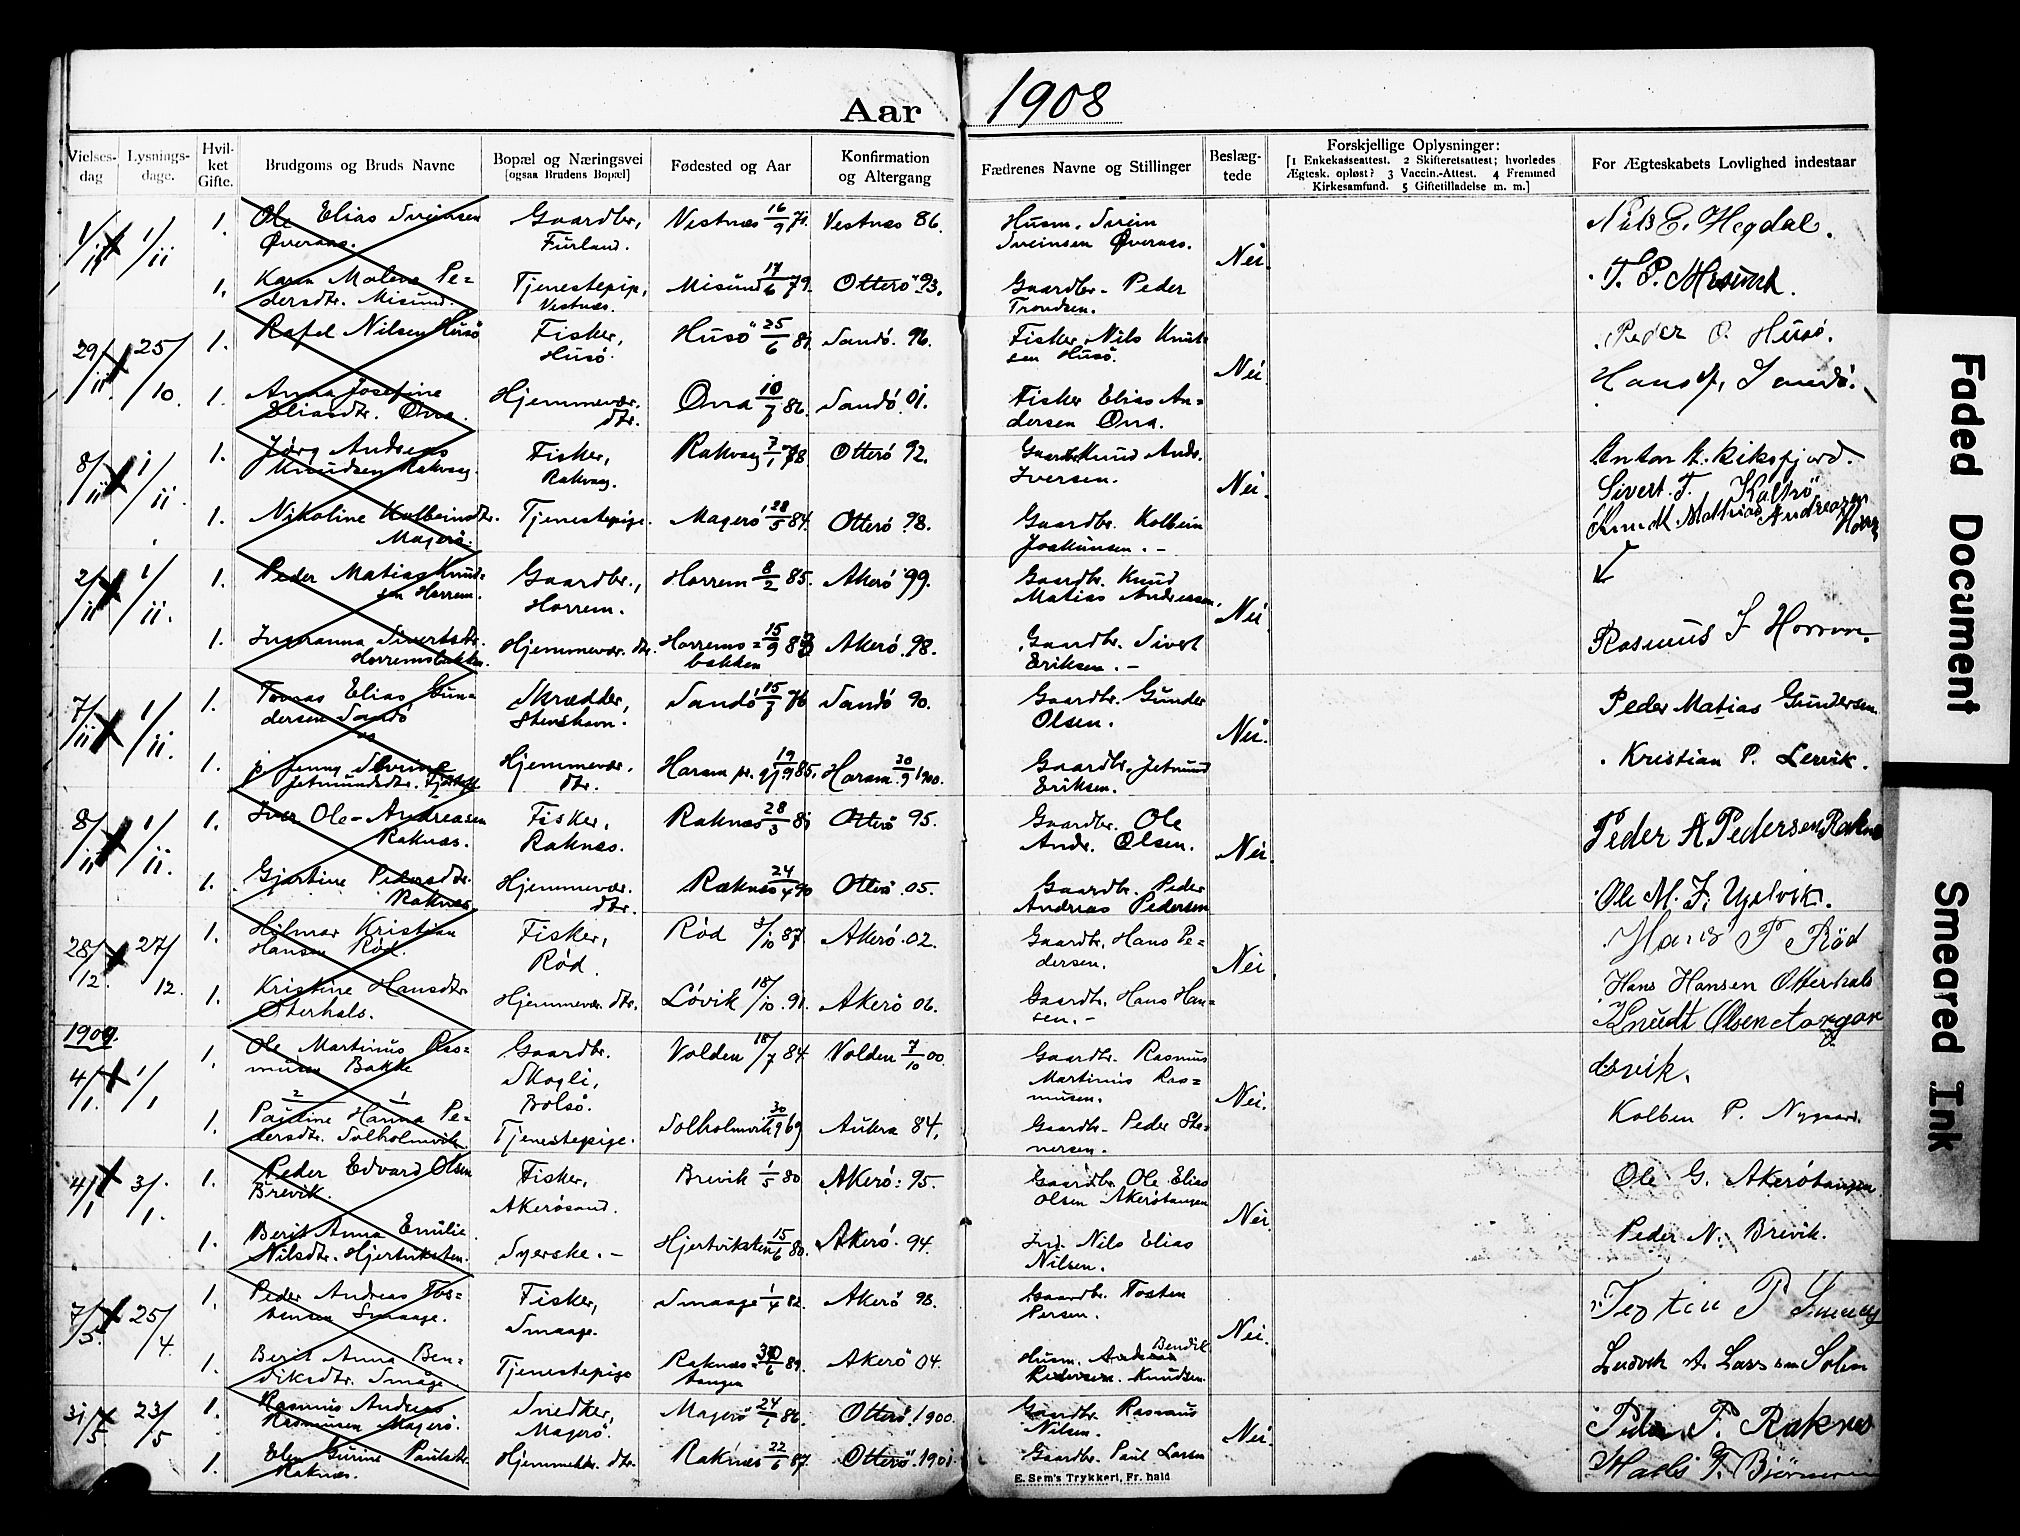 Aar 1908
Vielses-dag
Lysnings-dage.
Hvil-ket Gifte.
Brudgoms og Bruds Navne
Bopæl og Næringsvei
[ogsaa Brudens Bopæl]
Fødested og Aar
Konfirmation og Altergang
Fædrenes Navne og Stillinger
Beslæg-tede
Forskjellige Oplysninger:
[1 Enkekasseattest. 2 Skifteretsattest; hvorledes
Ægtesk. opløst? 3 Vaccin.-Attest. 4 Fremmed
Kirkesamfund. 5 Giftetilladelse m. m.]
For Ægteskabets Lovlighed indestaar
1/11 1/11 1. Ole Elias Sveinsen Gaardbr, Vestnæs 16/9 71. Vestnæs 86. Husm. Svein Nils E. Hegdal.
Øveraas. Furland. Sveinsen Øveraas. Nei.
1. Karen Malene Pe- Tjenestepip, Misund 17/6 79. Otterö 93. Gaardbr. Peder T. P. Misund.
dersdtr. Misund. Vestnæs. Trondsen.
29/11 25/10 1. Rafel Nilsen Husö Fisker, Husö 25/6 81. Sandö. 96. Fisker Nils Knut- Peder O. Husö.
Husö. sen Husö. Nei.
1. Anna Josefine Hjemmevær. Ona 10/7 86. Sandö. 01. Fisker Elias An- Hans J. Sandö.
Eliasdtr. Ona. dtr. dersen Ona.
8/11 1/11 1. Jörg Andreas Fisker, Rakvaag 7/1 78. Otterö 92. Gaardbr Knud Andr. Anton A. Riksfjord.
Knudsen Rakvaag. Rakvaag. Iversen. Nei. Sivert T. Kaltrö
1. Nikoline Kolbeinsdtr. Tjenestepige. Magerö 28/5 84. Otterö 98. Gaardbr. Kolbein Knudt Mathias Andreasen Horr
Magerö. Joakimsen. –
2/11 1/11. 1. Peder Matias Knud- Gaardbr., Horrem 8/2 85. Akerö 99. Gaardbr. Knud
sen Horrem. Horrem. Matias Andreasen. Nei.
1. Ingeranna Sivertsdtr. Hjemmevær. dtr. Horrems- 15/9 83 Akerö. 98. Gaardbr. Sivert Rasmus I Horrem.
Horremsbakken. bakken Eriksen. –
7/11 1/11. 1. Tomas Elias Gun- Skrædder, Sandö 15/7 76 Sandö 90. Gaardbr. Gunder Peder Matias Gundersen
dersen Sandö Stenshavn. Olsen. Nei.
og
1. p. Jenny Severine Hjemmevær. Haram pr. gj. 19/9 85. Haram. 30/9 1900. Gaardbr. Jetmund Kristian P. Lervik.
Jetmundsdtr. dtr. Eriksen.
8/11 1/11. 1. Iver Ole-Andreasen Fisker, Raknæs 28/3 81 Otterö 95. Gaardbr. Ole Peder A Pedersen Rakn
Raknæs. Raknæs. Andr. Olsen. Nei.
1. Gjertine Pedersdtr. Hjemmevær. Raknæs 24/4 90 Otterö 05. Gaardbr. Peder Ole M. I. Ugelvik.
Raknæs. dtr. Andreas Pedersen
28/12. 27/12. 1. Hilmar Kristian Fisker, Röd 3/10 87 Akerö. 02. Gaardbr. Hans Pe- Hans P Röd
Hansen Röd. Röd. dersen. Nei
1. Kristine Hansdtr Hjemmevær. dtr. Lövik 18/10 91. Akerö 06. Gaardbr. Hans Han- Hans Hansen Otterhals
Oterhals. sen. – Knudt Olsen Aargar
1909.
4/1. 1/1 1. Ole Martinus Ras- Gaardbr. Volden 18/7 84. Volden 7/10 00. Gaardbr. Rasmus dsvik.
musen Bakke Skogli, Martinus Ras-
2 1 Bolsö. musen. Nei.
1. Pauline Hanna Pe- Tjenestepige. Solholmvik 30/9 69 Aukra 84. Gaardbr. Peder Ste- Kolben P. Nygaard.
dersdtr. Solholmvik. nersen.
4/1 3/1. 1. Peder Edvard Olsen Fisker, Brevik 1/5 80 Akerö: 95. Gaardbr. Ole Elias Ole G. Akerötangen
Brevik. Akerösand. Olsen Akerötangen Nei.
1. Berit Anna Emilie Syerske. – Hjertviksten 15/6 80. Akerö. 94. Ind. Nils Elias Peder N. Brevik.
Nilsdtr. Hjertviksten. Nilsen.
7/5. 25/4. 1. Peder Andreas Tos- Fisker, Smaage 1/4 82. Akerö 98. Gaardbr. Tosten Tostin P Smaag
tensen Smaage. Smaage. Persen. Nei.
1. Berit Anna Ben- Tjenestepige Raknæs- 30/6 89. Akerö 04. Husm. Bendik Ludvik A Larssen Solem
diksdtr. Smaage tangen Pedersen Knudsen.
31/5 23/5 1. Rasmus Andreas Snedker, Magerö 24/1 86. Otterö. 1900. Gaardbr. Rasmus Peder P. Raknes
Rasmusen Magerö. Magerö. Nilsen. Nei.
1. Elen Gurine Paulsdtr. Hjemmev. dtr. Raknæs 22/6 87. Otterö. 1901. Gaardbr. Paul Larsen Mads T. Björnerem
Raknæs.
E. Sem's Trykkeri, Fr.hald
Faded Document
Smeared Ink